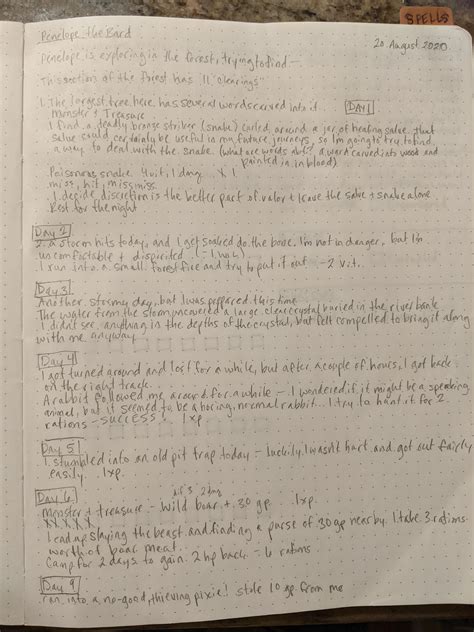 SPELLS
Penelope the Bard
20 August 2020
Penelope is exploring in the forest, trying to find —
This section of the forest has 11 "clearings"
1. The largest tree here has several words carved into it. DAY 1
Monster + Treasure
I find a deadly bronze striker (snake) curled around a jar of healing salve. that
salve could certainly be useful in my future journeys, so I'm going to try to find
a way to deal with the snake. (what are words abt? a word carved into wood and
painted in in blood)
Poisonous snake 4 vit, 1 dmg X 1
miss, hit, miss, miss
I decide discretion is the better part of valor + leave the salve + snake alone
Rest for the night
Day 2
2. a storm hits today, and I get soaked to the bone. I'm not in danger, but I'm
uncomfortable + dispirited
I run into a small forest fire and try to put it out -2 vit.
Day 3
Another stormy day, but I was prepared this time
The water from the storm uncovered a large, clear crystal buried in the river bank
I didn't see anything in the depths of the crystal, but felt compelled to bring it along
with me anyway
Day 4
I got turned around and lost for a while, but after a couple of hours, I got back
on the right track.
A rabbit followed me around for a while - I wondered if it might be a speaking
animal, but it seemed to be a boring, normal rabbit. I try to hunt it for 2
rations - success! 1xp
Day 5
I stumbled into an old pit trap today - luckily, I wasn't hurt and got out fairly
easily. 1xp.
Day 6
monster + treasure - Wild boar + 30 gp 1xp
I end up slaying the beast and finding a purse of 30gp nearby. I take 3 rations
worth of boar meat.
Camp for 2 days to gain 2hp back - 6 rations
Day 9
ran into a no-good, thieving pixie! stole 10 gp from me